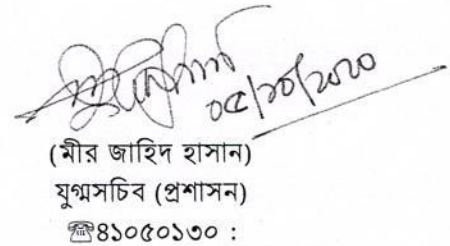 ০৫/১০/২০২০
(মীর জাহিদ হাসান)
যুগ্মসচিব (প্রশাসন)
☎৪১০৫০১৩০ :